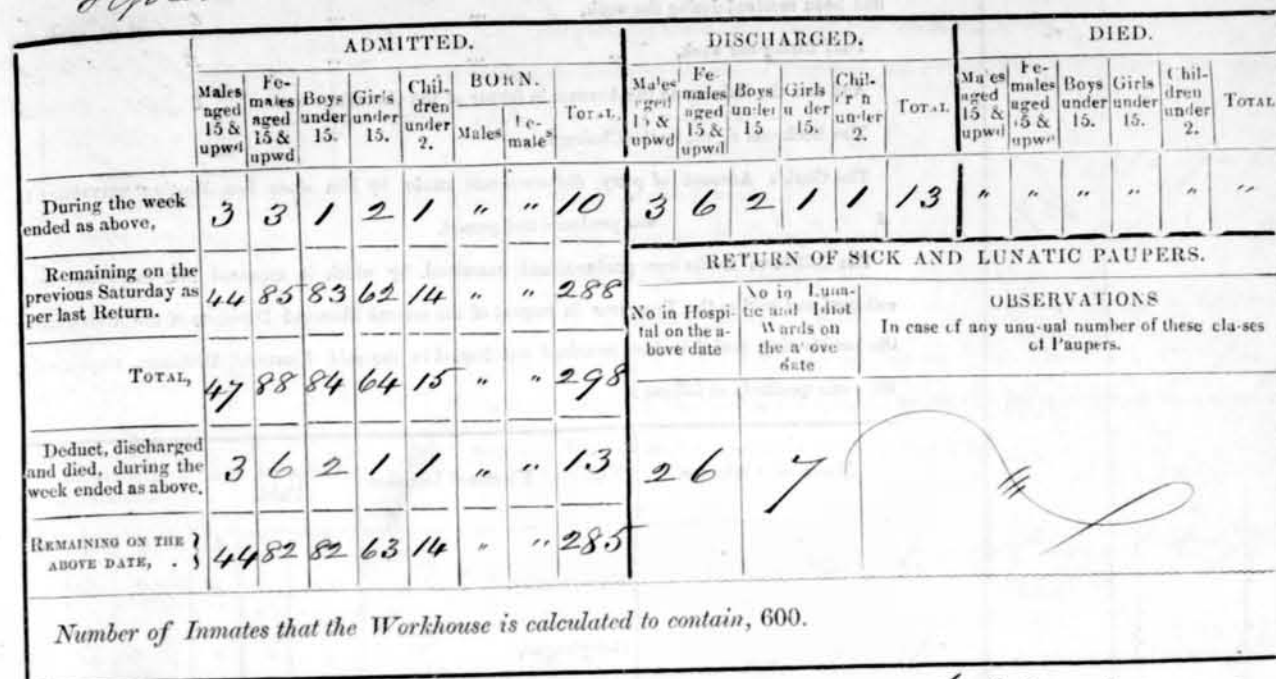 ADMITTED. DISCHARGED. DIED.
Males aged 15 & upwd Females aged 15 & upwd Boys under 15. Girls under 15. Children under 2. BORN. Males Females TOTAL. Males aged 15 & upwd Females aged 15 & upwd Boys under 15 Girls under 15. Children under 2. TOTAL Males aged 15 & upwd Females aged 15 & upwd Boys under 15. Girls under 15. Children under 2. TOTAL
During the week ended as above, 3 3 1 2 1 " " 10 3 6 2 1 1 13 " " " " " "
Remaining on the previous Saturday as per last Return. 44 85 83 62 14 " " 288
TOTAL, 47 88 84 64 15 " " 298
Deduct, discharged and died, during the week ended as above. 3 6 2 1 1 " " 13
REMAINING ON THE ABOVE DATE, . 44 82 82 63 14 " " 285
RETURN OF SICK AND LUNATIC PAUPERS.
No in Hospital on the above date
No in Lunatic and Idiot Wards on the above date
OBSERVATIONS
In case of any unusual number of these classes of Paupers.
26 7
Number of Inmates that the Workhouse is calculated to contain, 600.